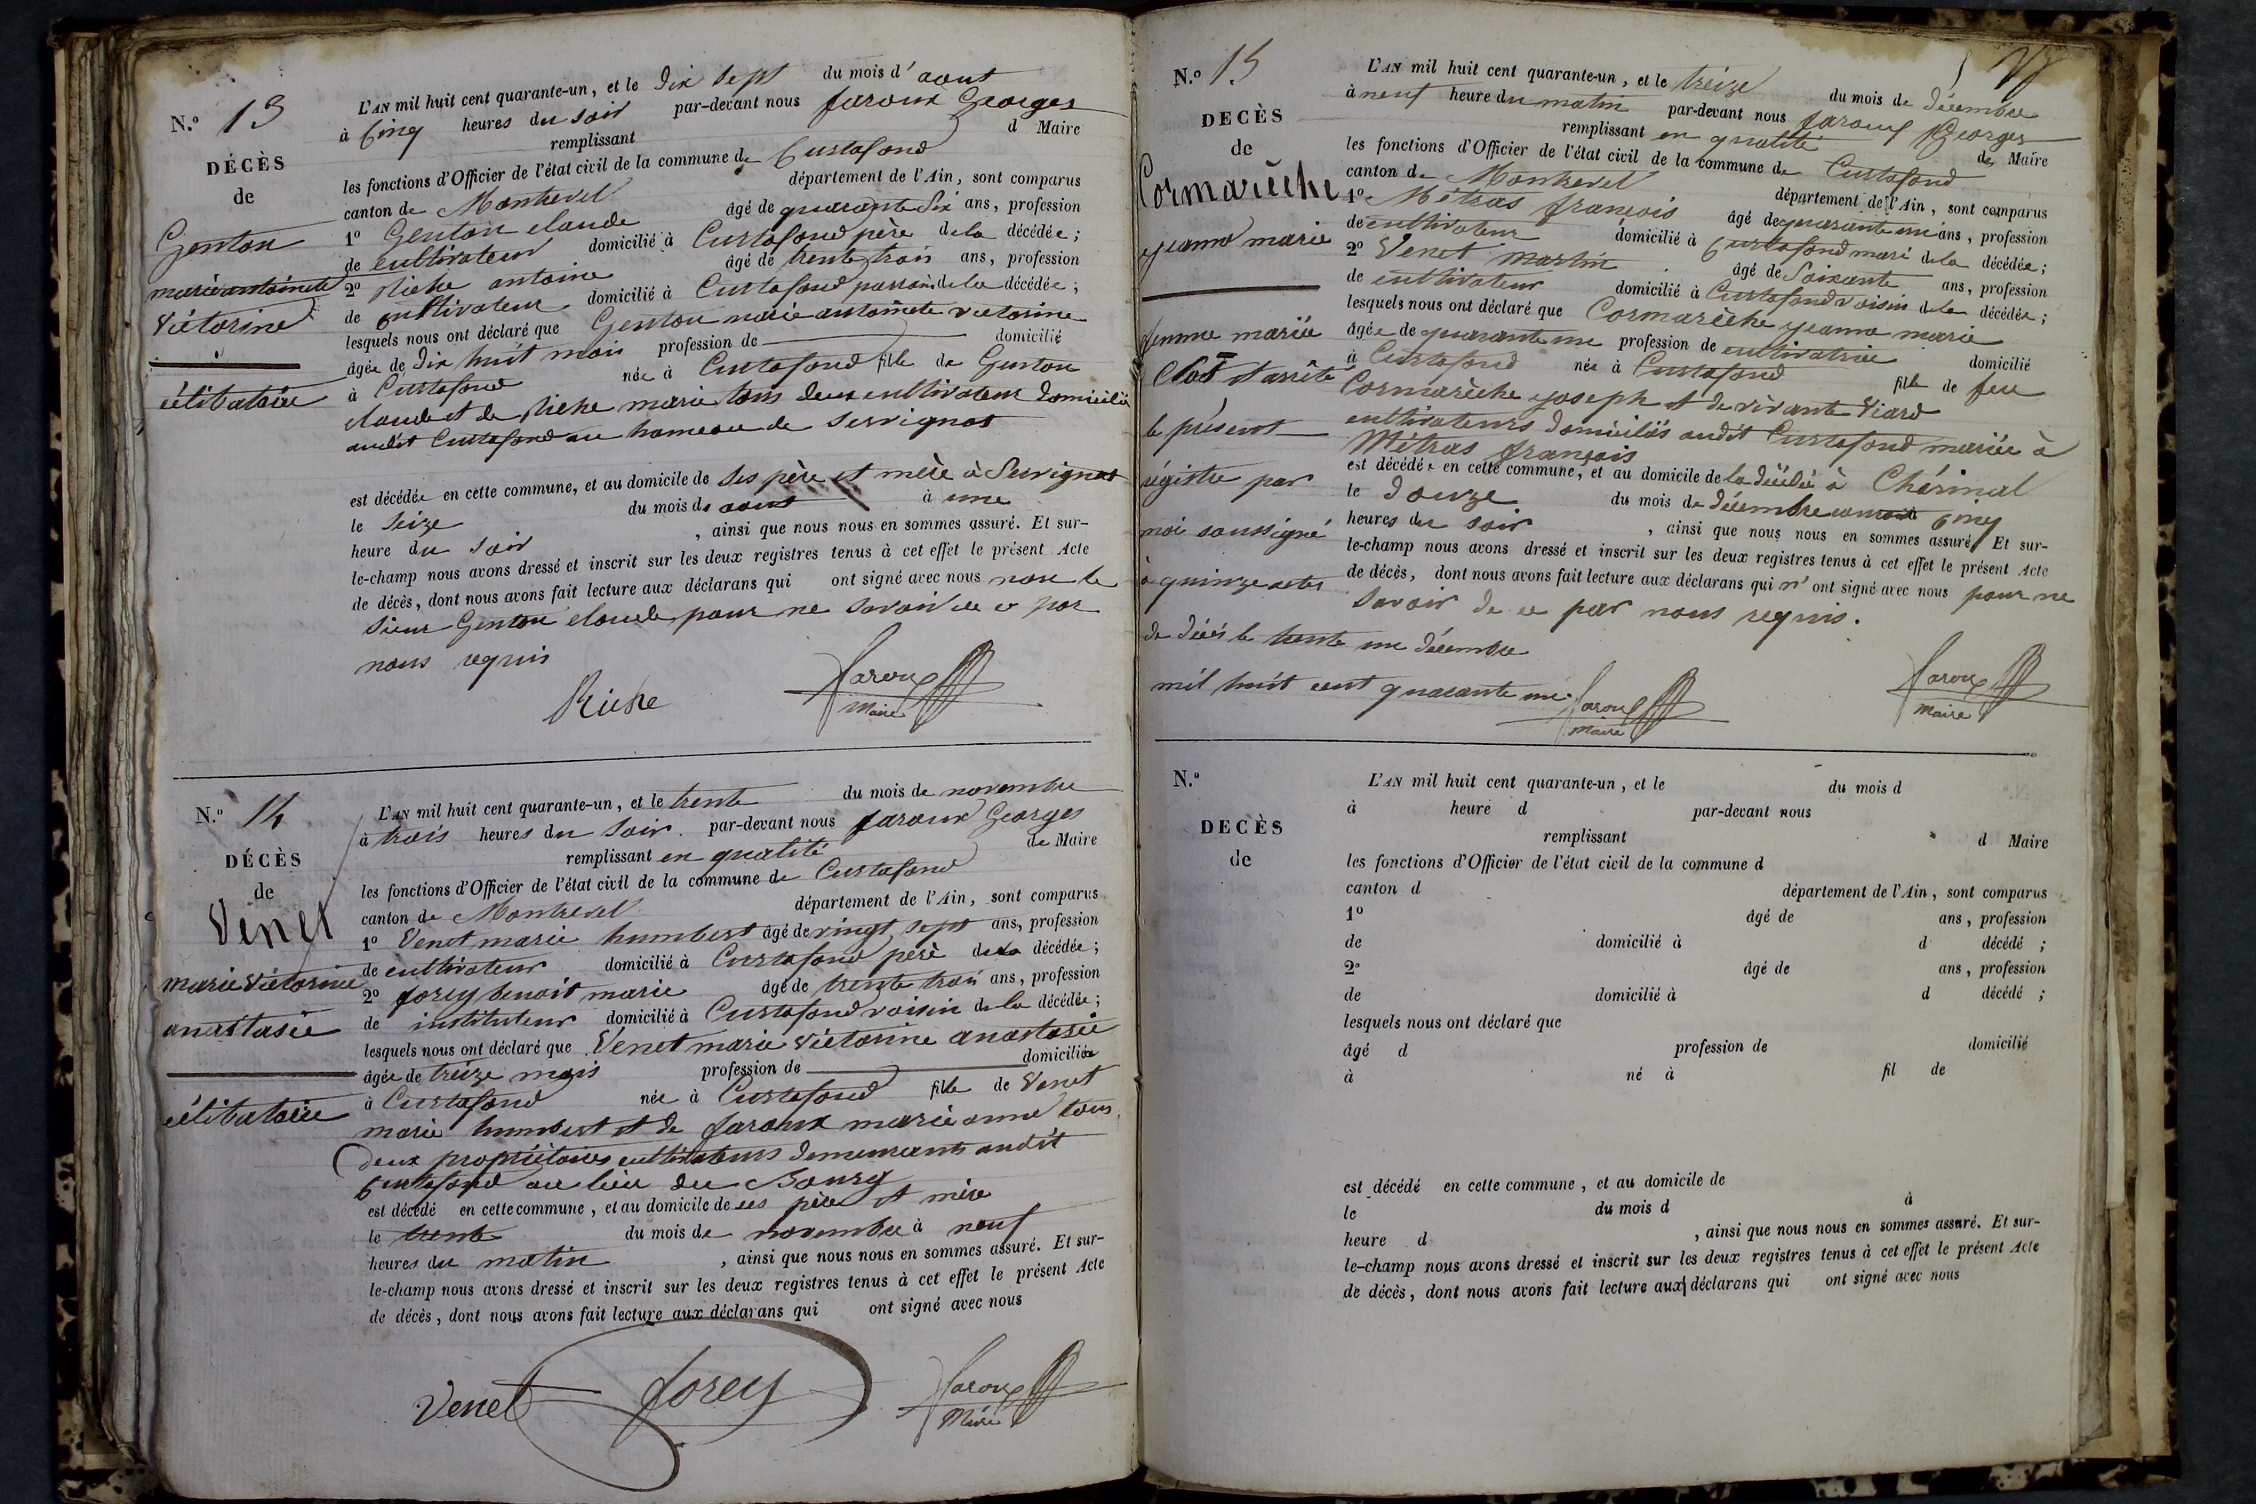 N.º 13
DÉCÈS
de
Genton
marie antoinette
Victorine
célibataire
L'AN mil huit cent quarante-un, et le dix sept du mois d'aout
à Cinq heures du soir par-devant nous faroux Georges
remplissant d Maire
les fonctions d'Officier de l'état civil de la commune de Curtafond
canton de Montrevel département de l'Ain, sont comparus
1º Genton claude âgé de quarante six ans, profession
de cultivateur domicilié à Curtafond père de la décédée;
2º Riche antoine âgé de trente trois ans, profession
de cultivateur domicilié à Curtafond parrain de la décédée;
lesquels nous ont déclaré que Genton marie antoinete victorine
âgée de dix huit mois profession de domicilié
à Curtafond née à Curtafond fille de Genton
claude et de Riche marie tous deux cultivateurs domiciliés
audit Curtafond au hameau de Servignat
est décédée en cette commune, et au domicile de ses père et mère à Servignat
le seize du mois de aout à une
heure du soir, ainsi que nous nous en sommes assuré. Et sur-
le-champ nous avons dressé et inscrit sur les deux registres tenus à cet effet le présent Acte
de décès, dont nous avons fait lecture aux déclarans qui ont signé avec nous non le
sieur Genton claude pour ne savoir de ce par
nous requis
Riche faroux
Maire
N.º 14
DÉCÈS
de
Venet
marie Victorine
anastasie
célibataire
L'AN mil huit cent quarante-un, et le trente du mois de novembre
à trois heures du soir par-devant nous faroux Georges
remplissant en qualité de Maire
les fonctions d'Officier de l'état civil de la commune de Curtafond
canton de Montrevel département de l'Ain, sont comparus
1º Venet marie humbert âgé de vingt sept ans, profession
de cultivateur domicilié à Curtafond père de la décédée;
2º forey benoit marie âgé de trente trois ans, profession
de instituteur domicilié à Curtafond voisin de la décédée;
lesquels nous ont déclaré que Venet marie Victorine anastasie
âgée de treize mois profession de domiciliée
à Curtafond née à Curtafond fille de Venet
marie humbert et de faroux marie anne tous
deux propriétaires cultivateurs demeurants audit
Curtafond au lieu du Bourg
est décédé en cette commune, et au domicile de ses père et mère
le trente du mois de novembre à neuf
heures du matin, ainsi que nous nous en sommes assuré. Et sur-
le-champ nous avons dressé et inscrit sur les deux registres tenus à cet effet le présent Acte
de décès, dont nous avons fait lecture aux déclarans qui ont signé avec nous
Venet forey faroux
Maire
N.º 15
DECÈS
de
Cormarèche
jeanne marie
femme mariée
Clos et arrêté
le présent
régistre par
moi soussigné
à quinze actes
de décès le trente un décembre
mil huit cent quarante un.
faroux
maire
L'AN mil huit cent quarante-un, et le treize du mois de décembre
à neuf heure du matin par-devant nous faroux Georges
remplissant en qualité de Maire
les fonctions d'Officier de l'état civil de la commune de Curtafond
canton de Montrevel département de l'Ain, sont comparus
1º Métras françois âgé de quarante un ans, profession
de cultivateur domicilié à Curtafond mari de la décédée;
2º Venet martin âgé de soixante ans, profession
de cultivateur domicilié à Curtafond voisin de la décédée;
lesquels nous ont déclaré que Cormarèche jeanne marie
âgée de quarante un profession de cultivatrice domicilié
à Curtafond née à Curtafond fille de feu
Cormarèche joseph et de vivante Viard
cultivateurs domiciliés audit Curtafond mariée à
Métras françois
est décédée en cette commune, et au domicile de la décédée à Chérinal
le douze du mois de décembre cinq
heures du soir, ainsi que nous nous en sommes assuré. Et sur-
le-champ nous avons dressé et inscrit sur les deux registres tenus à cet effet le présent Acte
de décès, dont nous avons fait lecture aux déclarans qui n'ont signé avec nous pour ne
savoir de ce par nous requis.
faroux
maire
N.º
DECÈS
de
L'AN mil huit cent quarante-un, et le du mois d
à heure d par-devant nous
remplissant d Maire
les fonctions d'Officier de l'état civil de la commune d
canton d département de l'Ain, sont comparus
1º âgé de ans, profession
de domicilié à d décédé ;
2º âgé de ans, profession
de domicilié à d décédé ;
lesquels nous ont déclaré que
âgé d profession de domicilié
à né à fil de
est décédé en cette commune, et au domicile de
le du mois d à
heure d , ainsi que nous nous en sommes assuré. Et sur-
le-champ nous avons dressé et inscrit sur les deux registres tenus à cet effet le présent Acte
de décès, dont nous avons fait lecture aux déclarans qui ont signé avec nous